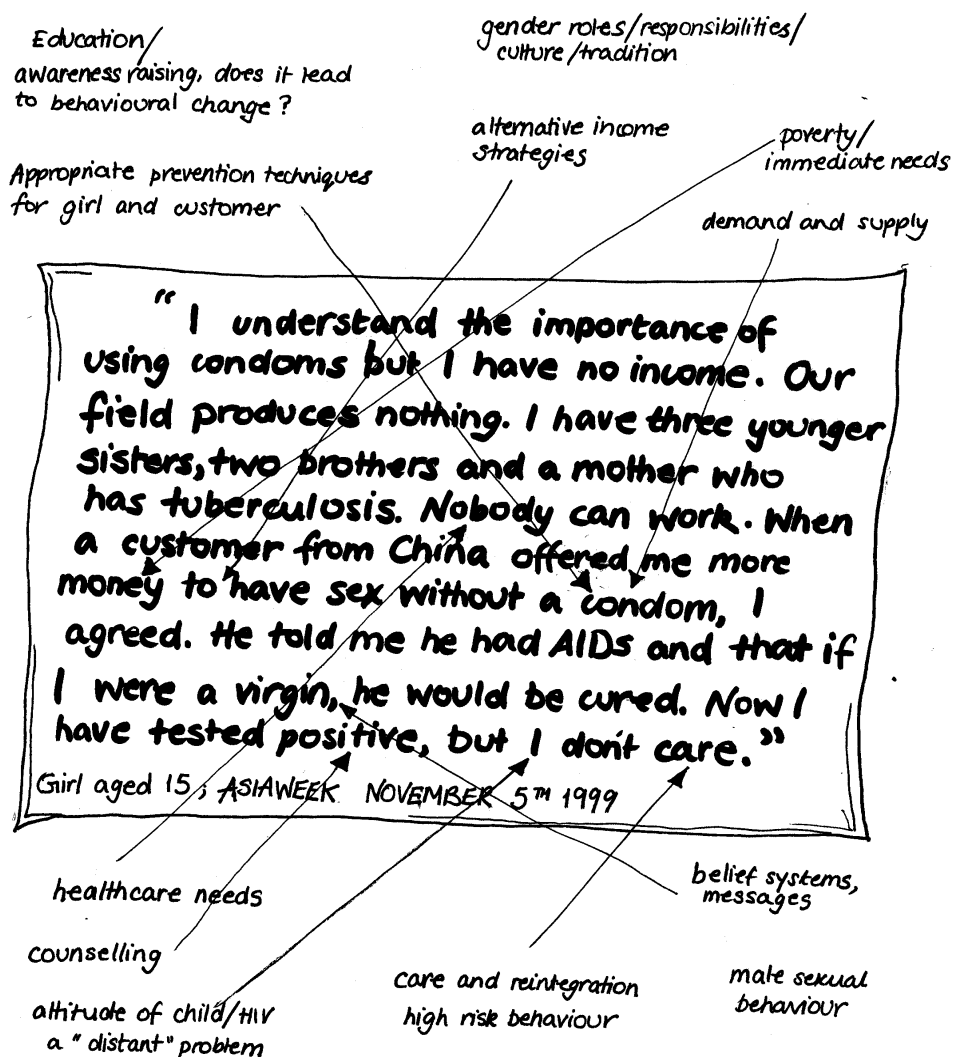 Education/
awareness raising, does it lead
to behavioural change?
gender roles/responsibilities/
culture/tradition
alternative income
strategies
poverty/
immediate needs
Appropriate prevention techniques
for girl and customer
demand and supply
"I understand the importance of
using condoms but I have no income. Our
field produces nothing. I have three younger
sisters, two brothers and a mother who
has tuberculosis. Nobody can work. When
a customer from China offered me more
money to have sex without a condom, I
agreed. He told me he had AIDs and that if
I were a virgin, he would be cured. Now I
have tested positive, but I don't care."
Girl aged 15; ASIAWEEK NOVEMBER 5TH 1999
healthcare needs
belief systems,
messages
counselling
care and reintegration
high risk behaviour
male sexual
behaviour
attitude of child/HIV
a "distant" problem